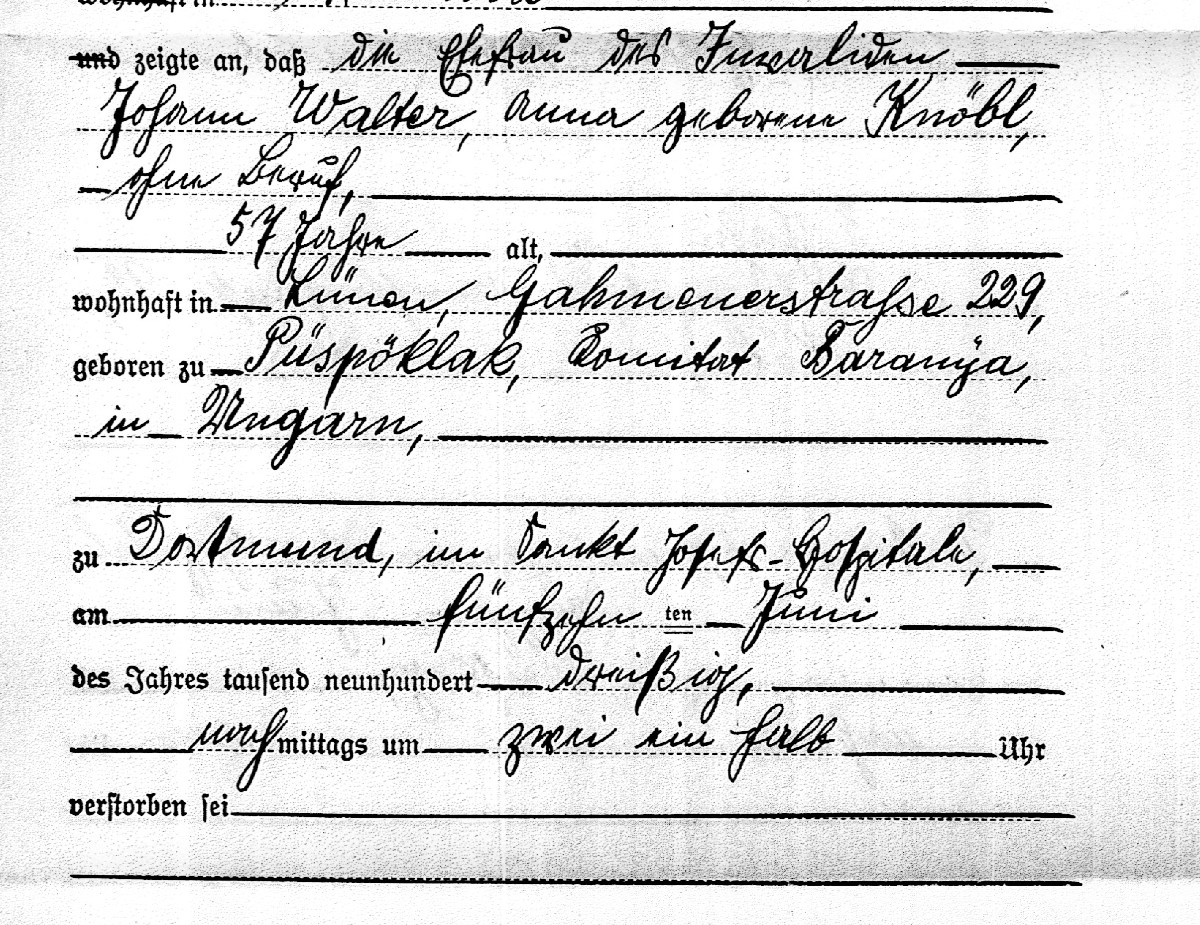 wohnhaft in
und zeigte an, daß die Ehefrau des Invaliden
Johann Walter, Anna geborene Knöbl,
ohne Beruf,
57 Jahre alt,
wohnhaft in Lünen, Gahmenerstraße 229,
geboren zu Püspöklak, Komitat Baranya,
in Ungarn,
zu Dortmund, im Sankt Josefs-Hospitale,
am fünfzehn ten Juni
des Jahres tausend neunhundert dreißig,
nachmittags um zwei ein halb Uhr
verstorben sei